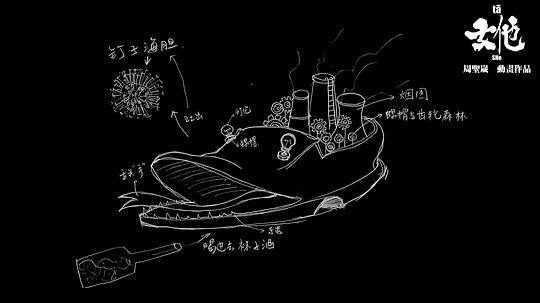 tā
女他
She
周聖崴 動畫作品
钉子海胆
吐出
灯泡
螺帽
烟囱
螺帽与齿轮森林
舌头"手"
喝进去 杯子酒